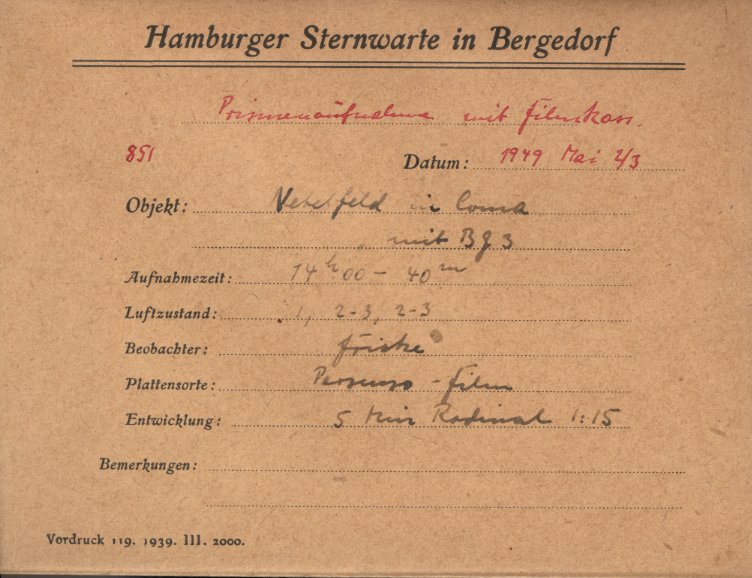 Hamburger Sternwarte in Bergedorf
Prismenaufnahme mit Filmkass.
851
Datum: 1949 Mai 2/3
Objekt: Nebelfeld in Coma
mit BG 3
Aufnahmezeit: 14h00 - 40m
Luftzustand: 1, 2-3, 2-3
Beobachter: Fricke
Plattensorte: Persenso - Film
Entwicklung: 5 Min Rodinal 1:15
Bemerkungen:
Vordruck 119. 1939. III. 2000.